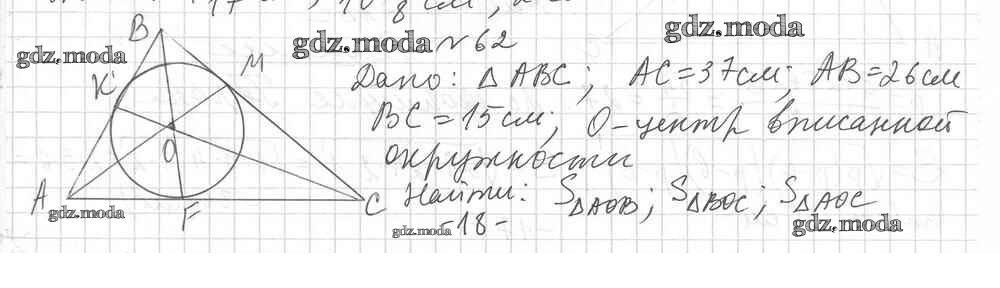 B
gdz.moda
gdz.moda № 62
gdz.moda
M
K
Дано: △ ABC; AC = 37 см; AB = 26 см
BC = 15 см; O - центр вписанной
окружности
O
A
C
F
gdz.moda
Найти: S△AOB; S△BOC; S△AOC
gdz.moda
gdz.moda
-18-